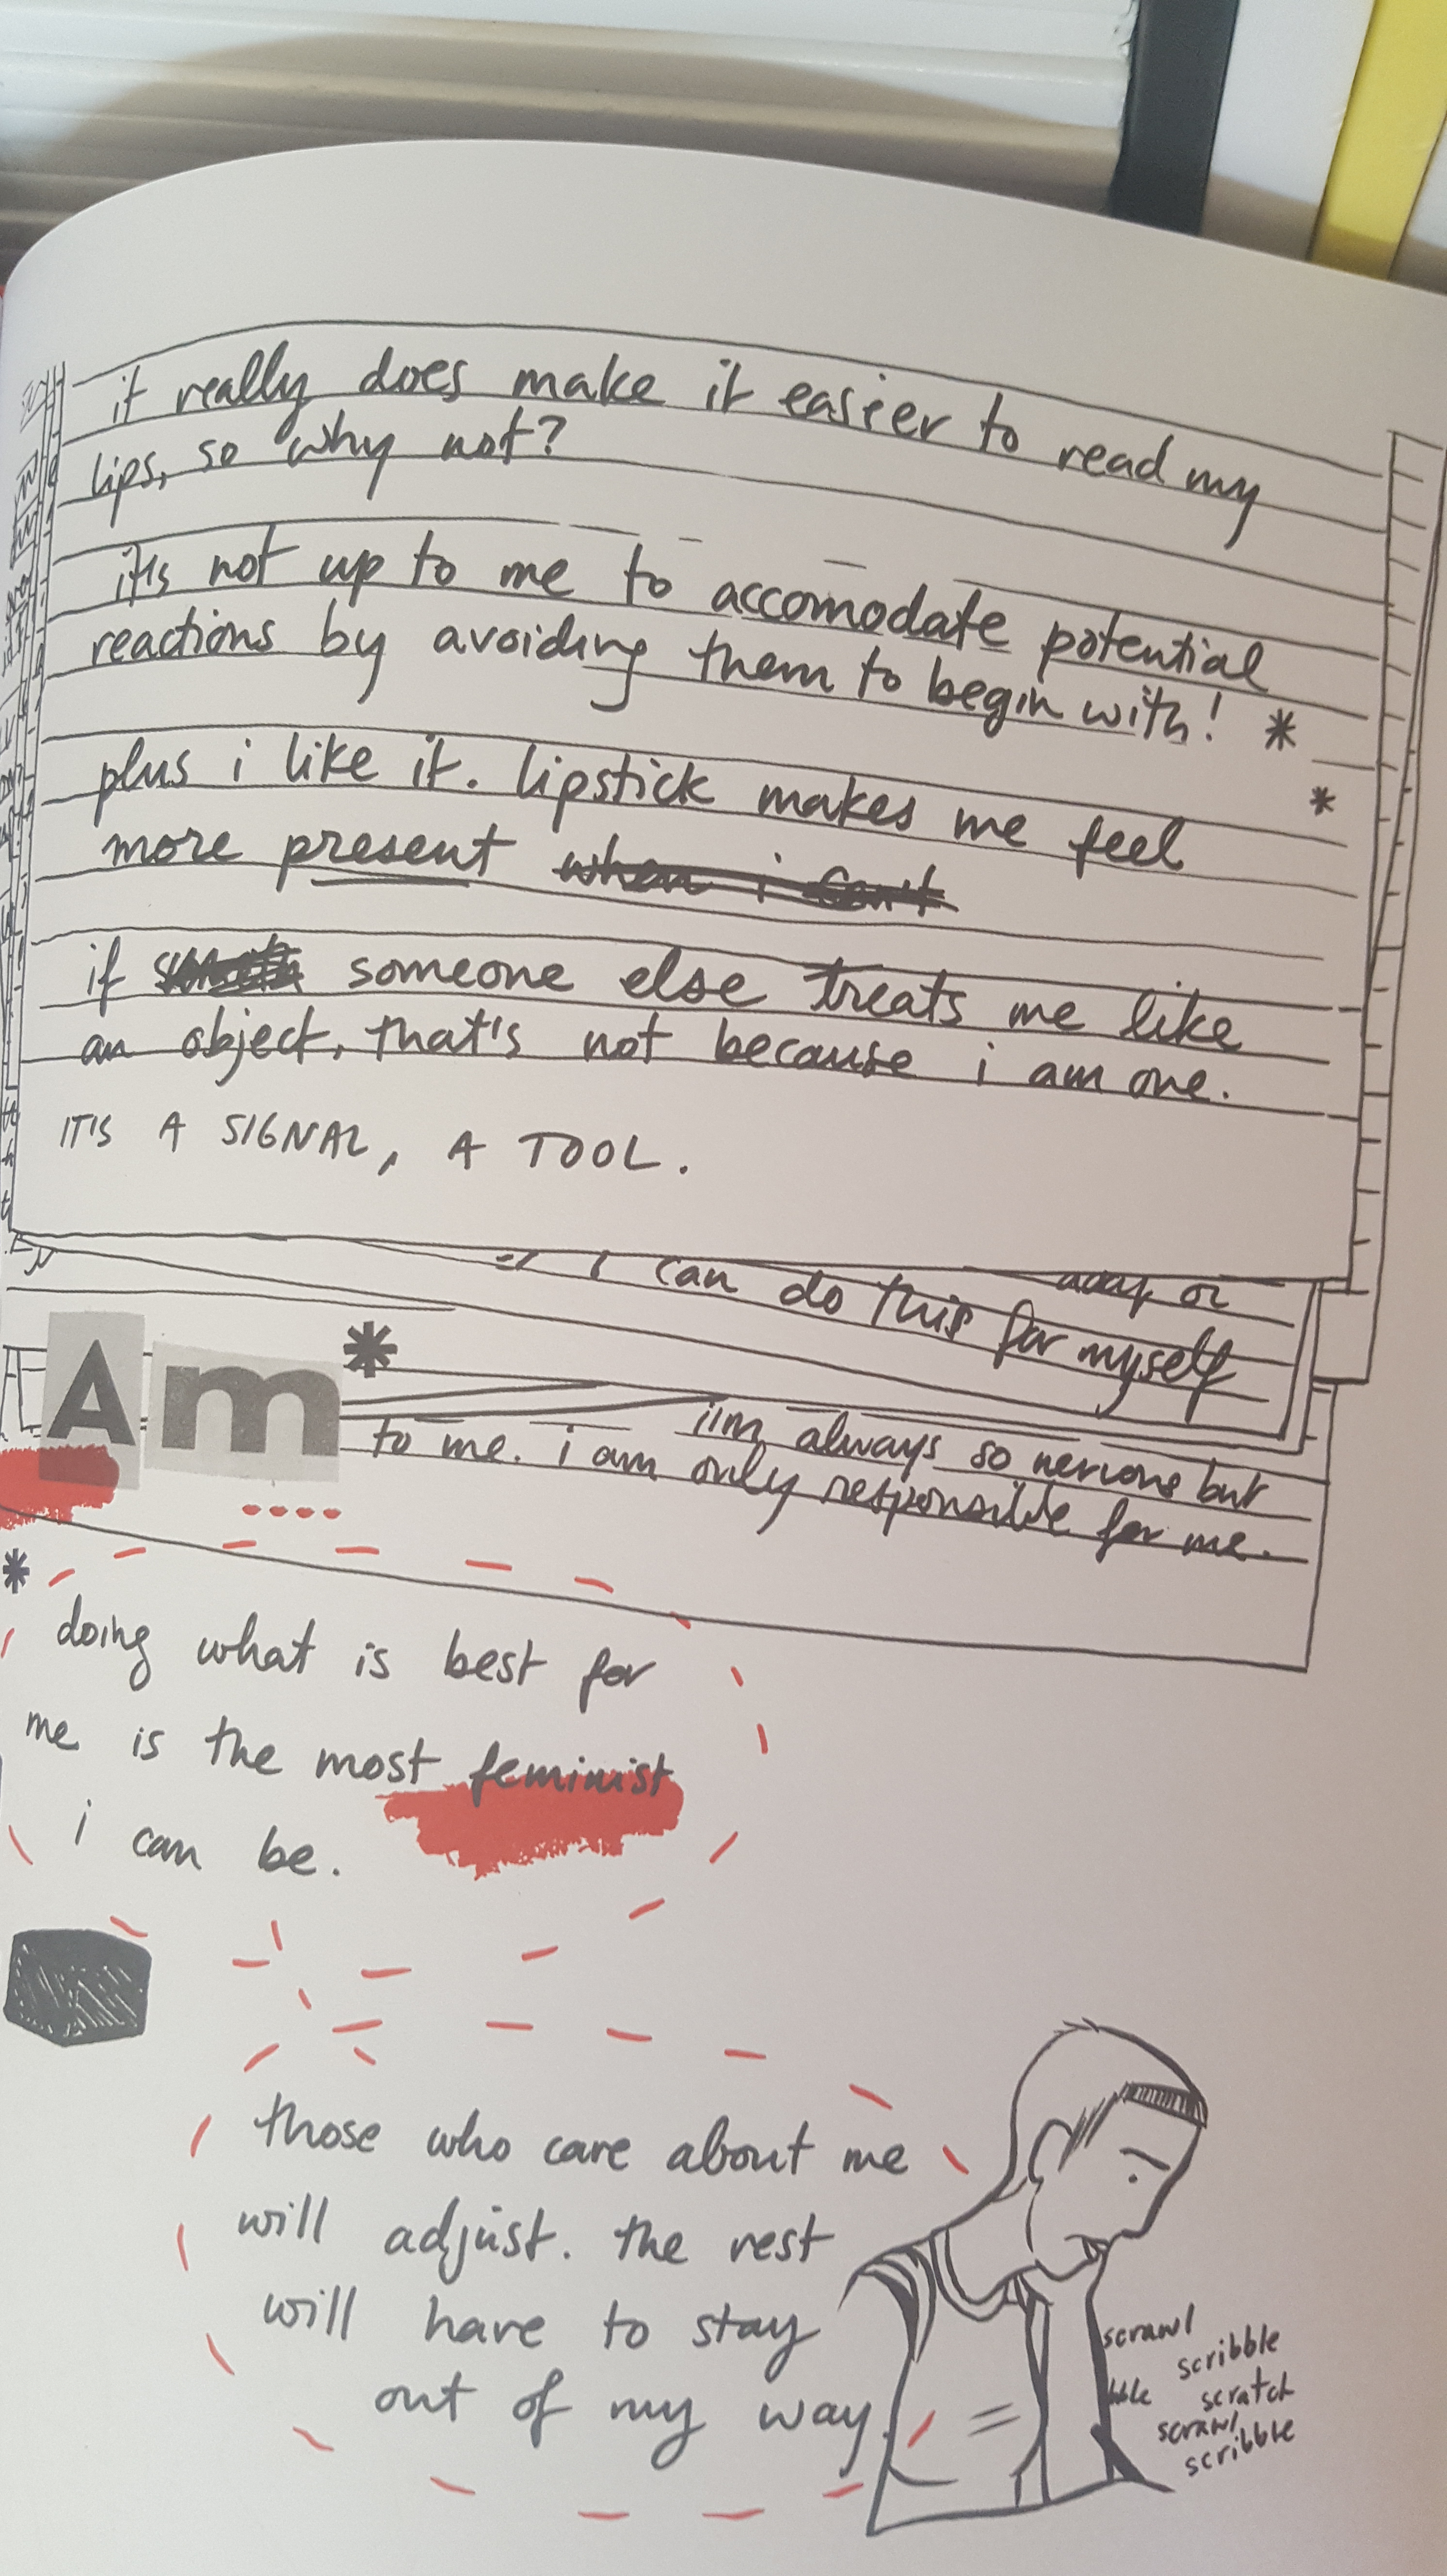 it really does make it easier to read my
lips, so why not?
it's not up to me to accomodate potential
reactions by avoiding them to begin with! *
*
plus i like it. lipstick makes me feel
more present when i can't
if someone else treats me like
an object, that's not because i am one.
IT'S A SIGNAL, A TOOL.
away or
I can do this for myself
Am*
i'm always so nervous but
to me. i am only responsible for me.
* doing what is best for
me is the most feminist
i can be.
those who care about me
will adjust. the rest
will have to stay
out of my way.
scrawl
scribble
scratch
scrawl
scribble